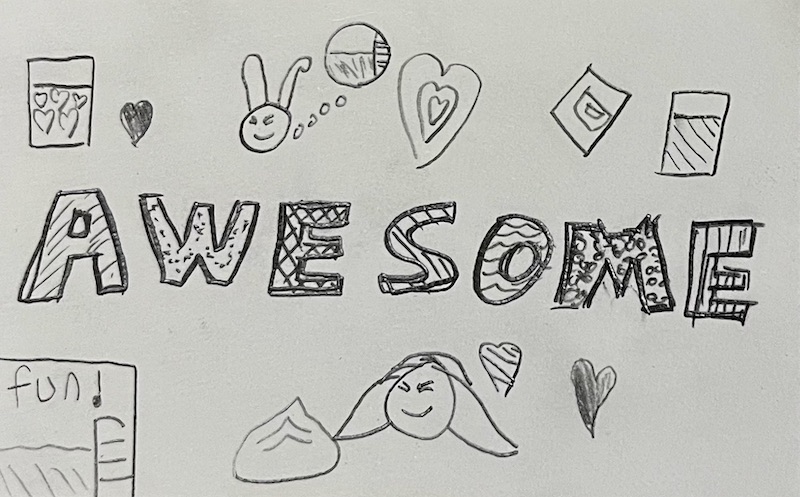 AWESOME
fun!